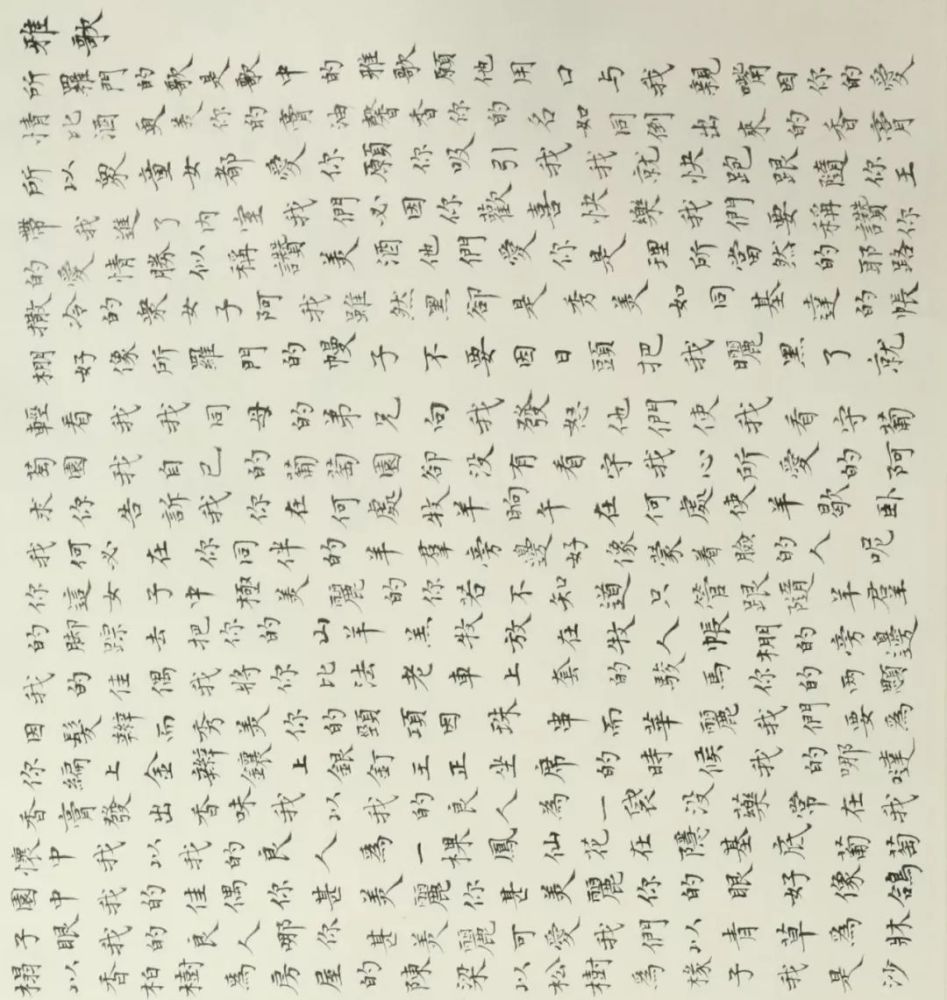 雅歌
所羅門的歌是歌中的雅歌願他用口与我親嘴因你的愛
情比酒更美你的膏油馨香你的名如同倒出來的香膏
所以衆童女都愛你願你吸引我我就快跑跟隨你王
帶我進了內室我們必因你歡喜快樂我們要稱讚你
的愛情勝似稱讚美酒他們愛你是理所當然的耶路
撒冷的衆女子阿我雖然黑卻是秀美如同基達的帳
棚好像所羅門的幔子不要因日頭把我曬黑了就
輕看我我同母的弟兄向我發怒他們使我看守葡
萄園我自己的葡萄園卻沒有看守我心所愛的阿
求你告訴我你在何處牧羊晌午在何處使羊歇臥
我何必在你同伴的羊羣旁邊好像蒙着臉的人呢
你這女子中極美麗的你若不知道只管跟隨羊羣
的脚踪去把你的山羊羔牧放在牧人帳棚的旁邊
我的佳偶我將你比法老車上套的駿馬你的兩顋
因髮辮而秀美你的頸項因珠串而華麗我們要為
你編上金辮鑲上銀釘王正坐席的時候我的哪噠
香膏發出香味我以我的良人為一袋沒藥常在我
懷中我以我的良人為一棵鳳仙花在隱基底葡萄
園中我的佳偶你甚美麗你甚美麗你的眼好像鴿
子眼我的良人哪你甚美麗可愛我們以青草為牀
榻以香柏樹為房屋的陳梁以松樹為椽子我是沙